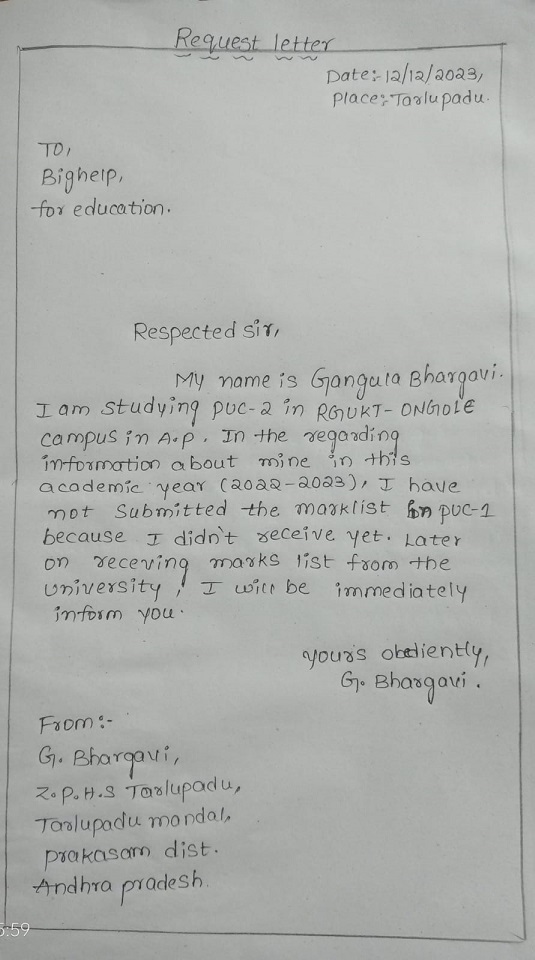 Request letter
Date:- 12/12/2023,
Place:- Tarlupadu.
TO,
Bighelp,
for education.
Respected sir,
My name is Gangula Bhargavi.
I am studying puc-2 in RGUKT- ONGOLE
campus in A.p. In the regarding
information about mine in this
academic year (2022-2023), I have
not submitted the marklist in puc-1
because I didn't receive yet. Later
on receving marks list from the
university, I will be immediately
inform you.
yours obediently,
G. Bhargavi.
From:-
G. Bhargavi,
Z.P.H.S Tarlupadu,
Tarlupadu mandal,
prakasam dist.
Andhra pradesh.
5:59